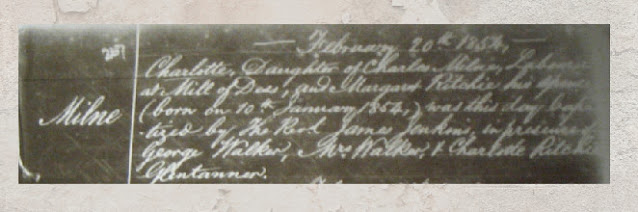 — February 20th 1854, —
Charlotte, Daughter of Charles Milne, Labourer
at Mill of Dess, and Margaret Ritchie his Spouse
Milne
(born on 10th January 1854,) was this day bap
-tized by The Revd James Jenkins, in presence of
George Walker, Mrs Walker, & Charlotte Ritchie
Glentanner.